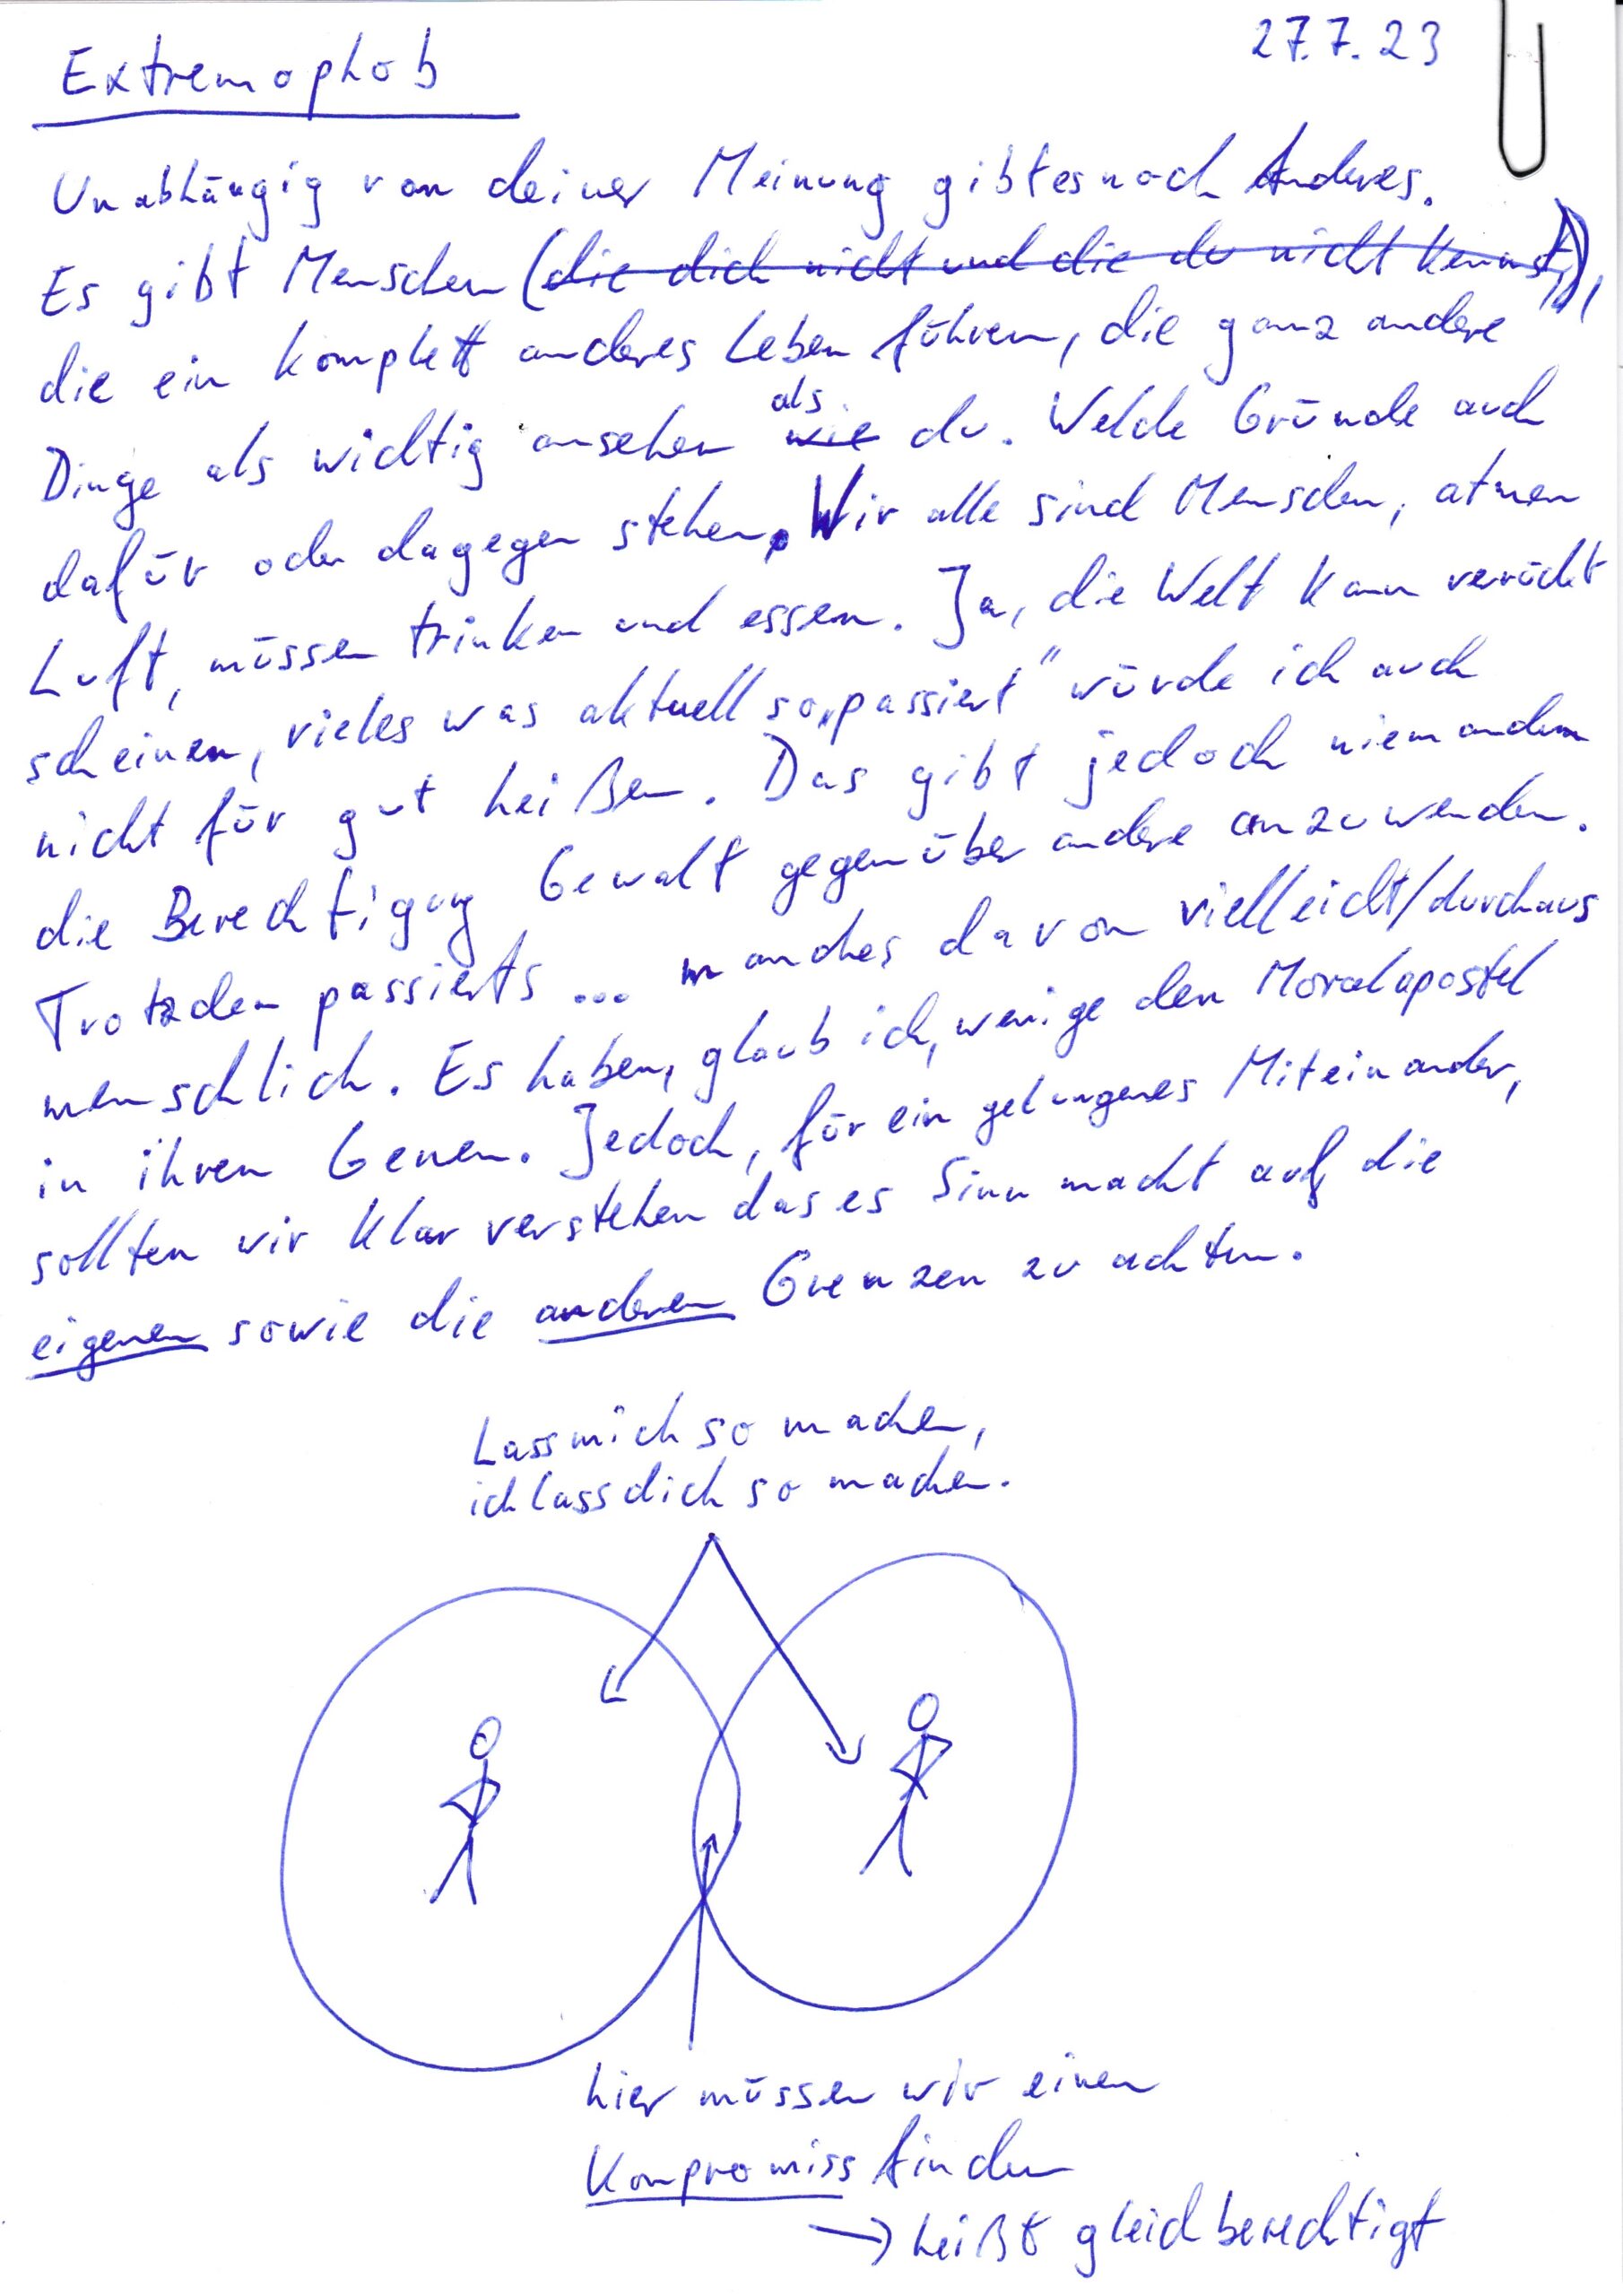 27.7.23
Extremophob
Unabhängig von deiner Meinung gibt es noch Anderes.
Es gibt Menschen (die dich nicht und die du nicht kennst),
die ein komplett anderes Leben führen, die ganz andere
Dinge als wichtig ansehen wie als du. Welche Gründe auch
dafür oder dagegen stehen. Wir alle sind Menschen, atmen
Luft, müssen trinken und essen. Ja, die Welt kann verückt
scheinen, vieles was aktuell so„passiert" würde ich auch
nicht für gut heißen. Das gibt jedoch niemandem
die Berechtigung Gewalt gegenüber andere anzuwenden.
Trotzdem passierts ... manches davon vielleicht/durchaus
menschlich. Es haben, glaub ich, wenige den Moralapostel
in ihren Genen. Jedoch, für ein gelungenes Miteinander,
sollten wir klar verstehen das es Sinn macht auf die
eigenen sowie die anderen Grenzen zu achten.
Lass mich so machen,
ich lass dich so machen.
hier müssen wir einen
Kompromiss finden
→ heißt gleichberechtigt